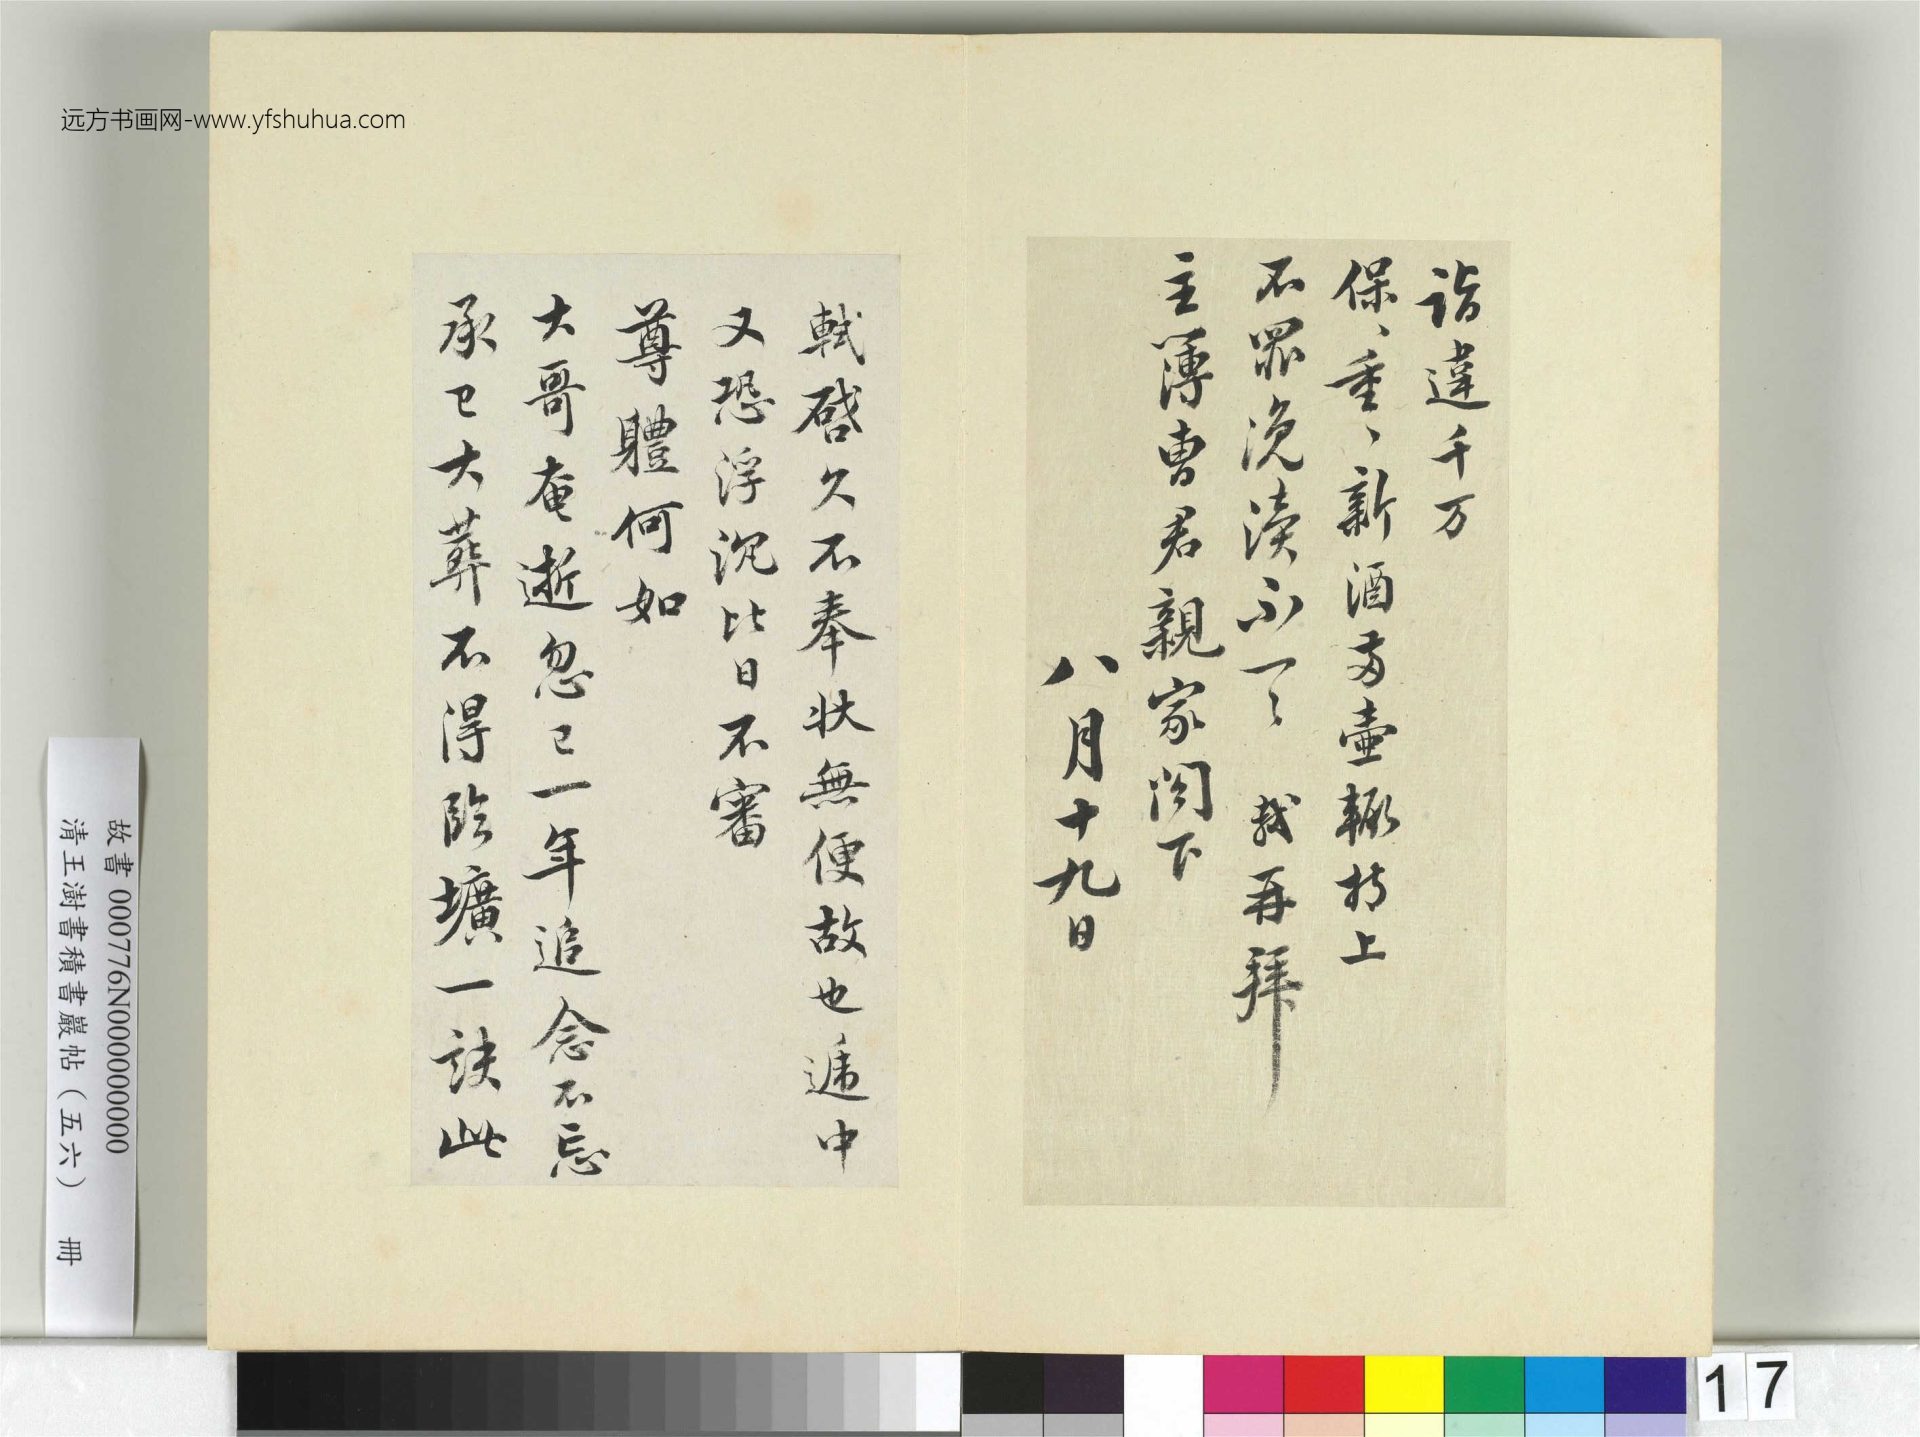 远方书画网-www.yfshuhua.com
詣違千万
保、重、新酒兩壺輙持上
不罪浼瀆不一〻 軾再拜
主簿曹君親家閣下
八月十九日
軾啓久不奉狀無便故也遞中
又恐浮沉比日不審
尊體何如
大哥奄逝忽已一年追念不忘
承已大葬不得臨壙一訣此
故書 000776N000000000
清王澍書積書巖帖（五六） 冊
17